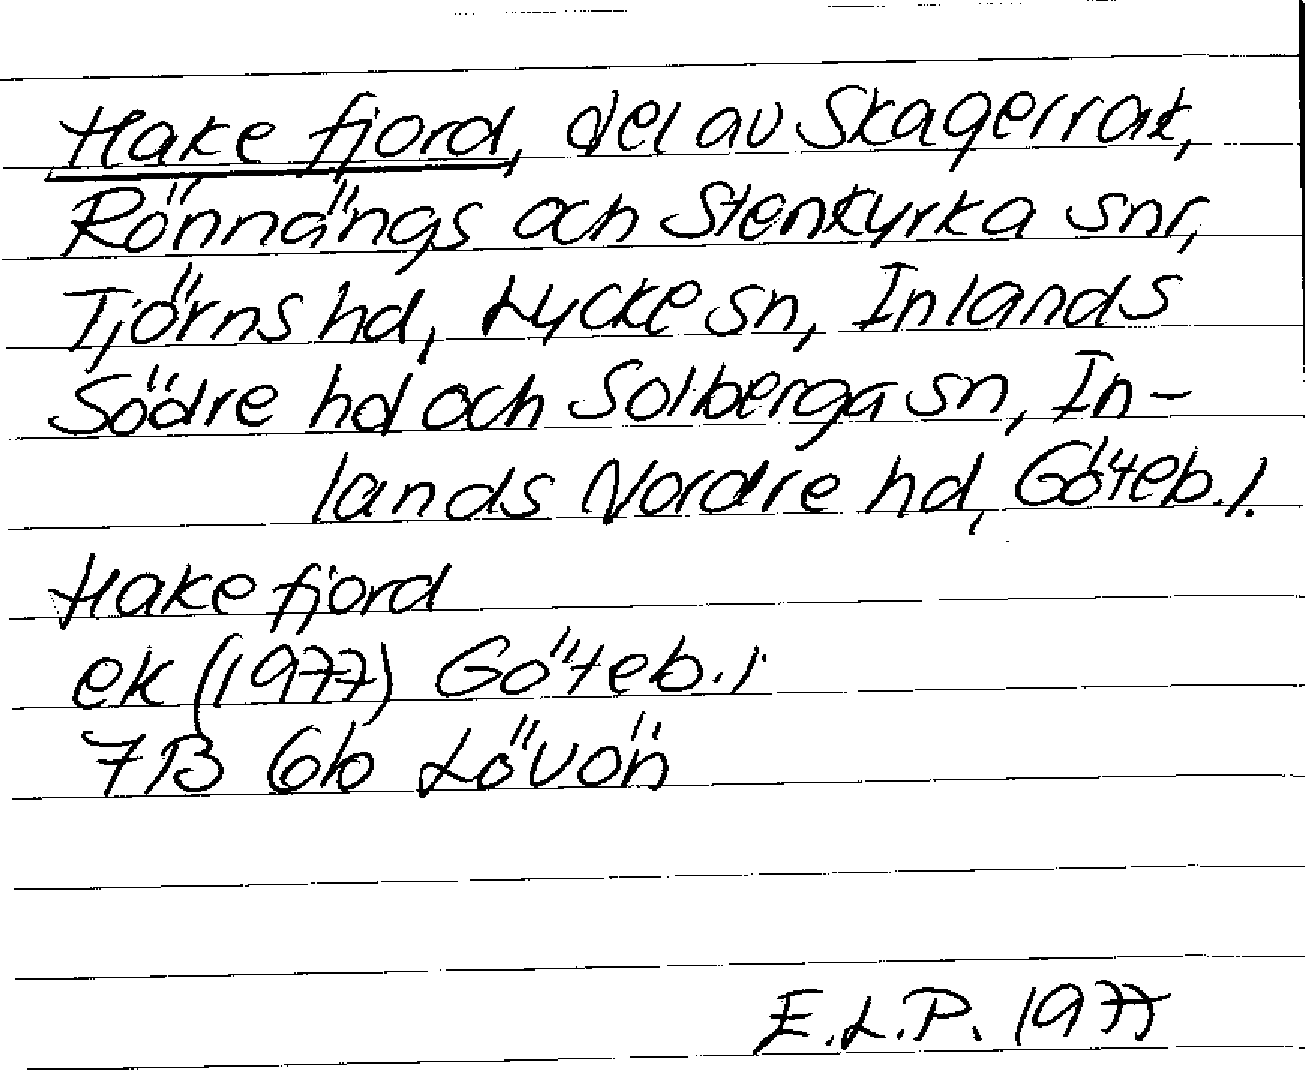 Hake fjord, del av Skagerrak,
Rönnängs och Stenkyrka snr,
Tjörns hd, Lycke sn, Inlands
Södre hd och Solberga sn, In-
lands Nordre hd, Göteb. l.
Hake fjord
ek (1977) Göteb. l.
7B 6b Lövön
E.L.P. 1977